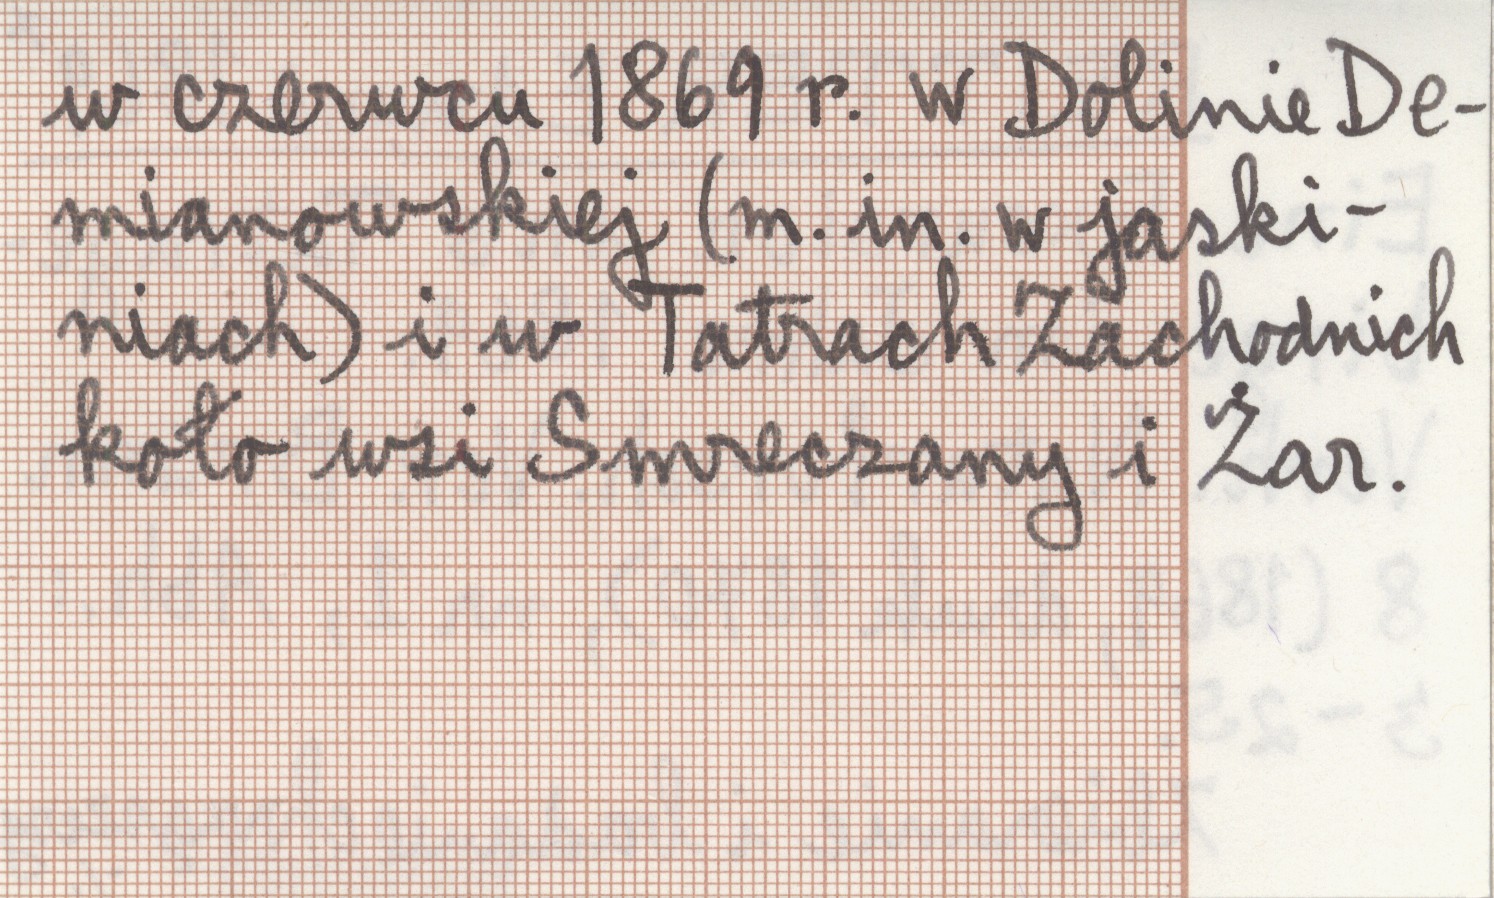 w czerwcu 1869 r. w Dolinie De-
mianowskiej (m. in. w jaski-
niach) i w Tatrach Zachodnich
koło wsi Smreczany i Żar.